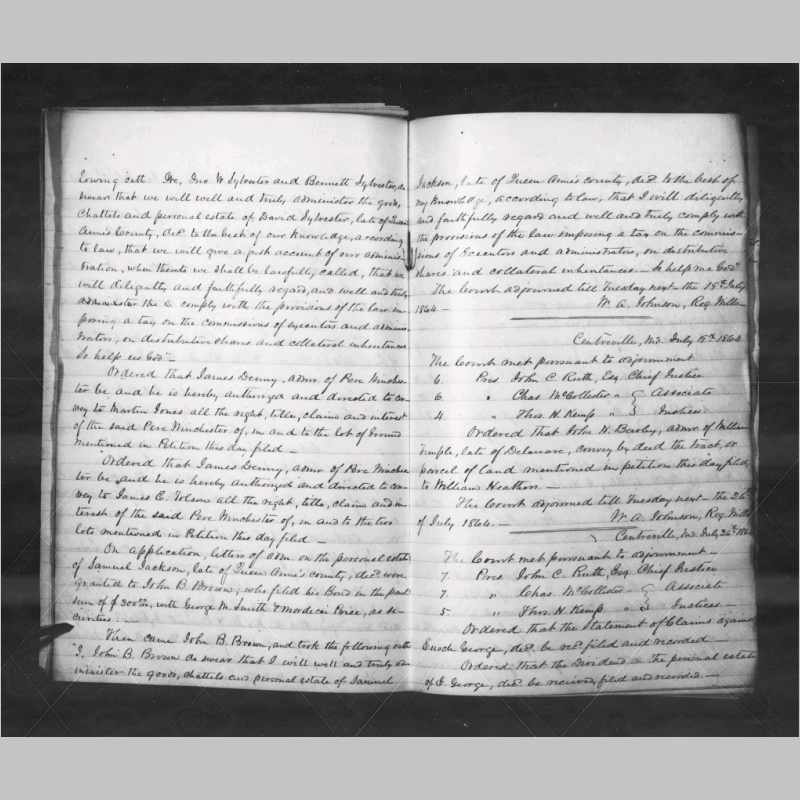 lowing oath. We, Jno W Sylvester and Bennett Sylvester, do
swear that we will well and truly administer the goods,
chattels and personal estate of David Sylvester, late of Queen
Ann's County, decd. to the best of our knowledge, according
to law, that we will give a just account of our adminis-
tration, when thereto we shall be lawfully called, that we
will diligently and faithfully regard, and well and truly
comply with the provisions of the law im-
posing a tax on the commissions of executors and adminis-
trators, on distributive shares and collateral inheritances
So help us God"—
Ordered that James Denny, admr of Pere Winches-
ter be, and he is hereby authorized and directed to con-
vey to Martin Jones all the right, title, claim and interest
of the said Pere Winchester of, in and to the lot of Ground
mentioned in Petition this day filed —
Ordered that James Denny, admr of Pere Winches-
ter be, and he is hereby authorized and directed to con-
vey to James E. all the right, title, claim and in-
terest of the said Pere Winchester of, in and to the two
lots mentioned in Petition this day filed —
On application, letters of adm. on the personal estate
of Samuel Jackson, late of Queen Ann's county, decd. were
granted to John B. Brown, who filed his Bond in the penal
sum of $ 300 with George M. Smith & Mordecai Price, as se-
curities —
Then came John B. Brown, and took the following oath
"I, John B. Brown do swear that I will well and truly ad-
minister the goods, chattels and personal estate of Samuel
Jackson, late of Queen Ann's county, decd. to the best of
my knowledge, according to law, that I will diligently
and faithfully regard and well and truly comply with
the provisions of the law imposing a tax on the commis-
sions of Executors and administrators, on distributive
shares and collateral inheritances — So help me God"
The Court adjourned till Tuesday next the 19th July
1864 —
W. A. Johnson, Reg Wills
Centreville, Md. July 19th 1864
The Court met pursuant to adjournment
6. Pres. John C. Ruth, Esq. Chief Justice
6. " Chas McCollister " } Associate
4. " Thos. H. Kemp " } Justices
Ordered that John H. admr of William
Temple, late of Delaware, convey by deed the tract, or
parcel of land mentioned in petition this day filed,
to William
The Court adjourned till Tuesday next the 26th
of July 1864 —
W. A. Johnson, Reg Wills
Centreville, Md. July 26th 1864
The Court met pursuant to adjournment —
7. Pres John C. Ruth, Esq Chief Justice
7. " Chas McCollister " } Associate
5. " Thos. H Kemp " } Justices —
Ordered that the Statement of Claims against
Enoch George, decd. be recd. filed and recorded —
Ordered that the Dividend on the personal estate
of E. George, decd. be received, filed and recorded —